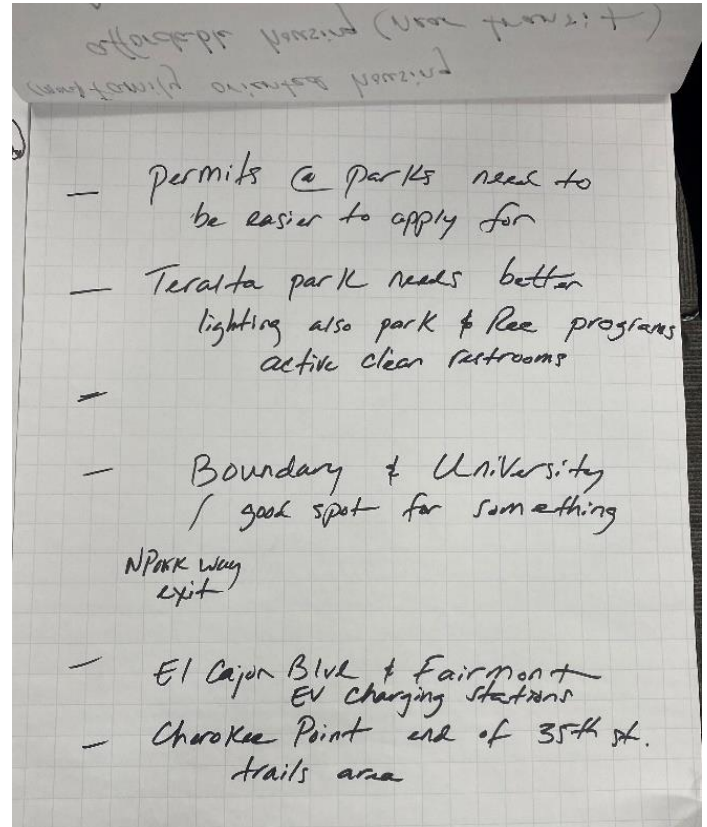 affordable housing (near transit)
family oriented housing
— permits @ parks need to
be easier to apply for
— Teralta park needs better
lighting also park & Rec programs
active clean restrooms
—
— Boundary & University
/ good spot for something
NPark Way
exit
— El Cajon Blvd & Fairmont
EV charging stations
— Cherokee Point end of 35th st.
trails area